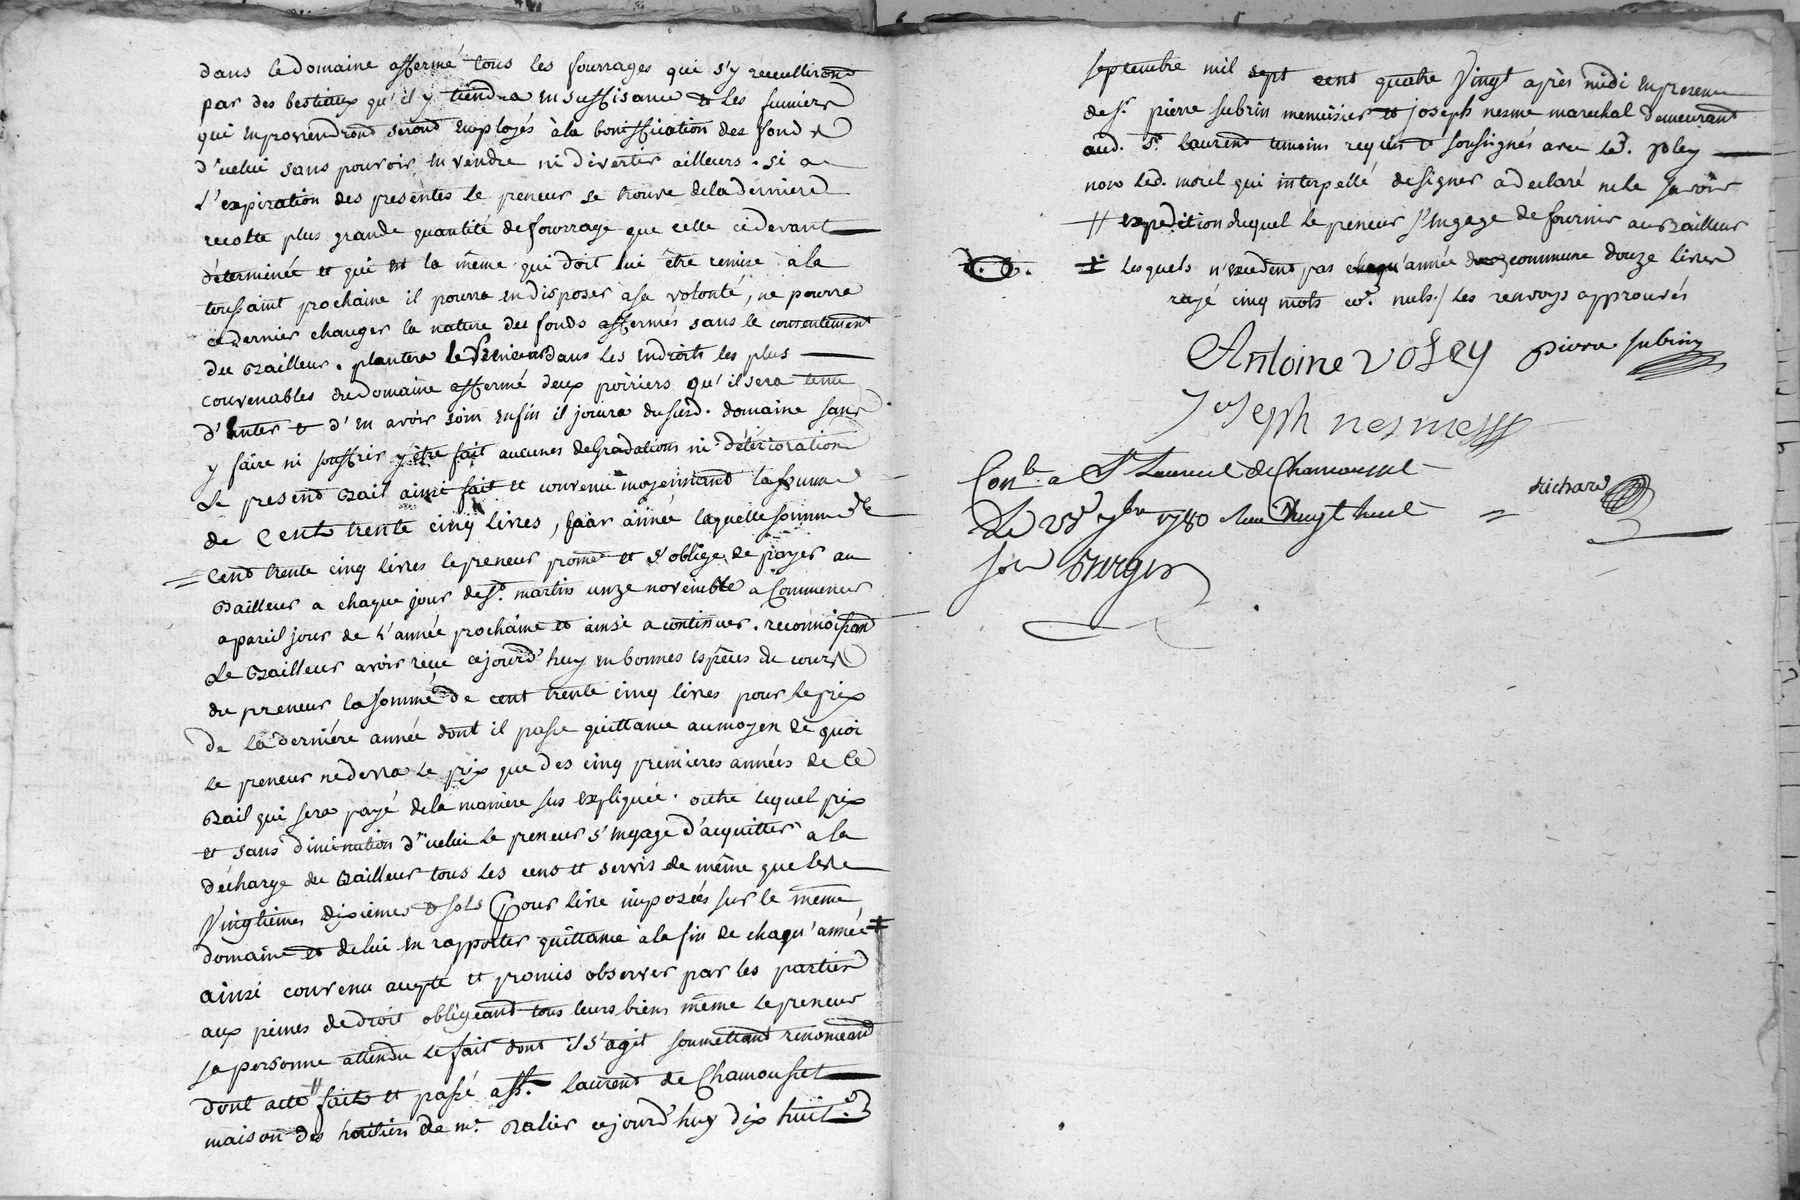 dans le domaine affermé tous les fourrages qui s'y recuelliront
par des bestiaux qu'il y tiendra en suffisance et les fumiers
qui en proviendront seront employés à la bonification des fonds
d'icelui sans pouvoir en vendre ni divertir ailleurs. si a
L'expiration des presentes le preneur se trouve dela derniere
recolte plus grande quantité de fourrage que celle cidevant
déterminée et qui est la même qui doit lui être remise à la
toussaint prochaine il pourra en disposer à sa volonté, ne pourra
ce dernier changer la nature des fonds affermés sans le consentement
du Bailleur. plantera le preneur dans les endroits les plus
convenables du domaine affermé deux poiriers qu'il sera tenu
d'enter et d'en avoir soin enfin il jouira dususd. domaine sans
y faire ni souffrir y être fait aucunes dégradations ni détérioration
Le present Bail ainsi fait et convenu moyennant la somme
de Cent trente cinq livres, par année laquelle somme de
Cent trente cinq livres le preneur promet et s'oblige de payer au
Bailleur a chaque jour de st. martin onze novembre a Commencer
apareil jour de l'année prochaine et ainsi a continuer. reconnoissant
Le Bailleur avoir reçu cejourd'huy en bonnes espèces de cours
du preneur la somme de cent trente cinq livres pour le prix
De la derniére année dont il passe quittance aumoyen de quoi
le preneur ne devra le prix que des cinq premieres années de ce
Bail qui sera payé dela maniere sus expliquée. outre lequel prix
et sans diminution d'icelui le preneur s'engage d'acquitter a la
décharge du Bailleur tous les cens et servis de même que les
Vingtiemes dixiemes et sols pour livre imposés sur le même
domaine et de lui en rapporter quittance à la fin de chaqu'année ‡
ainsi convenu accepté et promis observer par les parties
aux peines de droit obligeant tous leurs biens même le preneur
sa personne attendu le fait dont il s'agit soumettant renonceant
dont acte // fait et passé a st. Laurent de Chamousset
maison des heritiers de mr. Ralier cejourd'huy dix huit
septembre mil sept cent quatre Vingt après midi en presence
de sr. pierre subrin menuisier et joseph nesme marechal demeurant
aud. st. Laurent temoins requis et soussignés avec led. voley
non led. morel qui interpellé de signer a declaré ne le savoir
// expedition duquel le preneur s'engage de fournir au Bailleur
‡ lesquels n'excedent pas chaqu'année commune douze livres
rayé cinq mots co. nuls./ Les renvoys approuvés
Antoine voley pierre subrin
Joseph nesme
Conlé a St Laurent de Chamousset
Richard
Le 7bre 1780 Recu Vingt huit
sols Berger